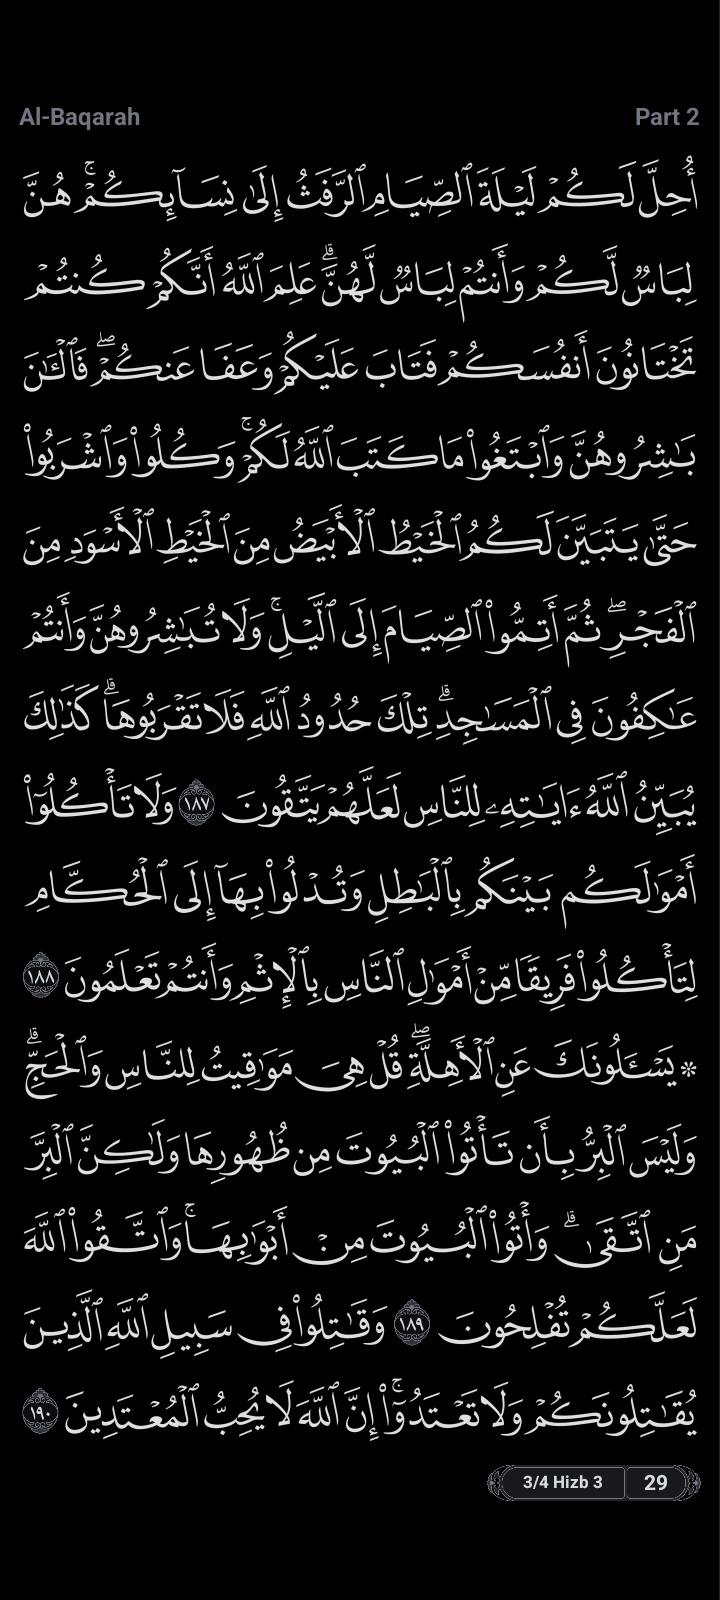 Al-Baqarah Part 2
أُحِلَّ لَكُمْ لَيْلَةَ ٱلصِّيَامِ ٱلرَّفَثُ إِلَىٰ نِسَآئِكُمْ ۚ هُنَّ
لِبَاسٌ لَّكُمْ وَأَنتُمْ لِبَاسٌ لَّهُنَّ ۗ عَلِمَ ٱللَّهُ أَنَّكُمْ كُنتُمْ
تَخْتَانُونَ أَنفُسَكُمْ فَتَابَ عَلَيْكُمْ وَعَفَا عَنكُمْ ۖ فَٱلْـَٔـٰنَ
بَـٰشِرُوهُنَّ وَٱبْتَغُوا۟ مَا كَتَبَ ٱللَّهُ لَكُمْ ۚ وَكُلُوا۟ وَٱشْرَبُوا۟
حَتَّىٰ يَتَبَيَّنَ لَكُمُ ٱلْخَيْطُ ٱلْأَبْيَضُ مِنَ ٱلْخَيْطِ ٱلْأَسْوَدِ مِنَ
ٱلْفَجْرِ ۖ ثُمَّ أَتِمُّوا۟ ٱلصِّيَامَ إِلَى ٱلَّيْلِ ۚ وَلَا تُبَـٰشِرُوهُنَّ وَأَنتُمْ
عَـٰكِفُونَ فِى ٱلْمَسَـٰجِدِ ۗ تِلْكَ حُدُودُ ٱللَّهِ فَلَا تَقْرَبُوهَا ۗ كَذَٰلِكَ
يُبَيِّنُ ٱللَّهُ ءَايَـٰتِهِۦ لِلنَّاسِ لَعَلَّهُمْ يَتَّقُونَ ١٨٧ وَلَا تَأْكُلُوٓا۟
أَمْوَٰلَكُم بَيْنَكُم بِٱلْبَـٰطِلِ وَتُدْلُوا۟ بِهَآ إِلَى ٱلْحُكَّامِ
لِتَأْكُلُوا۟ فَرِيقًا مِّنْ أَمْوَٰلِ ٱلنَّاسِ بِٱلْإِثْمِ وَأَنتُمْ تَعْلَمُونَ ١٨٨
۞ يَسْـَٔلُونَكَ عَنِ ٱلْأَهِلَّةِ ۖ قُلْ هِىَ مَوَٰقِيتُ لِلنَّاسِ وَٱلْحَجِّ ۗ
وَلَيْسَ ٱلْبِرُّ بِأَن تَأْتُوا۟ ٱلْبُيُوتَ مِن ظُهُورِهَا وَلَـٰكِنَّ ٱلْبِرَّ
مَنِ ٱتَّقَىٰ ۗ وَأْتُوا۟ ٱلْبُيُوتَ مِنْ أَبْوَٰبِهَا ۚ وَٱتَّقُوا۟ ٱللَّهَ
لَعَلَّكُمْ تُفْلِحُونَ ١٨٩ وَقَـٰتِلُوا۟ فِى سَبِيلِ ٱللَّهِ ٱلَّذِينَ
يُقَـٰتِلُونَكُمْ وَلَا تَعْتَدُوٓا۟ ۚ إِنَّ ٱللَّهَ لَا يُحِبُّ ٱلْمُعْتَدِينَ ١٩٠
3/4 Hizb 3 29